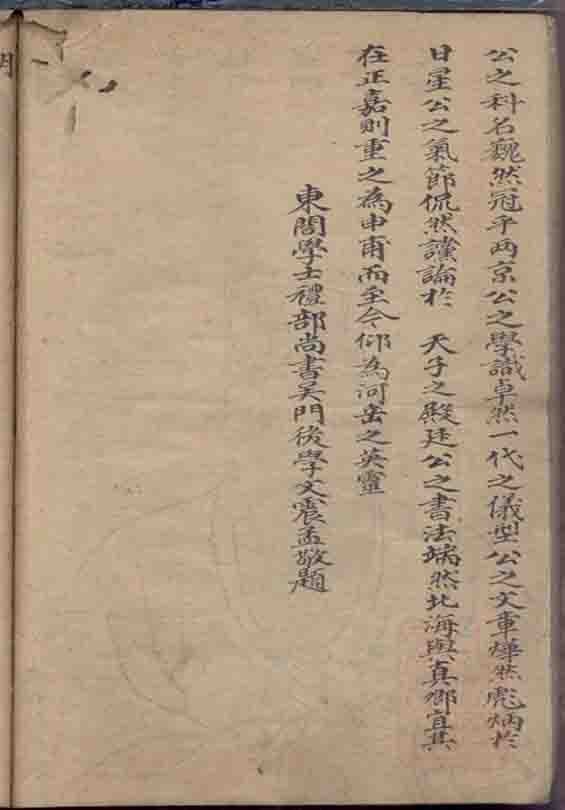 公之科名巍然冠乎两京公之學識卓然一代之儀型公之文章燁然彪炳於
日星公之氣節侃然讜論於　天子之殿廷公之書法端然北海與真卿宜其
在正嘉則重之為申甫而至今仰為河岳之英靈
東閣學士禮部尚書吴門後學文震孟敬題